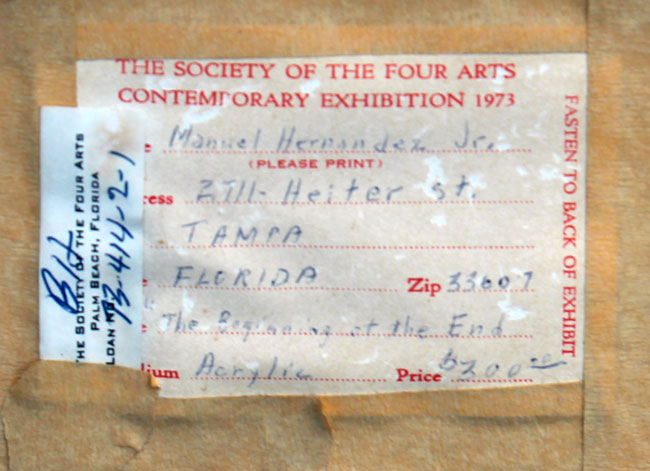 THE SOCIETY OF THE FOUR ARTS
CONTEMPORARY EXHIBITION 1973
e Manuel Hernandez Jr.
(PLEASE PRINT)
ress 2711- Heiter st.
TAMPA
e FLORIDA Zip 33607
e The Beginning of the End
ium Acrylic Price $300.00
FASTEN TO BACK OF EXHIBIT
THE SOCIETY OF THE FOUR ARTS
PALM BEACH, FLORIDA
LOAN NO. 73-414-2-1